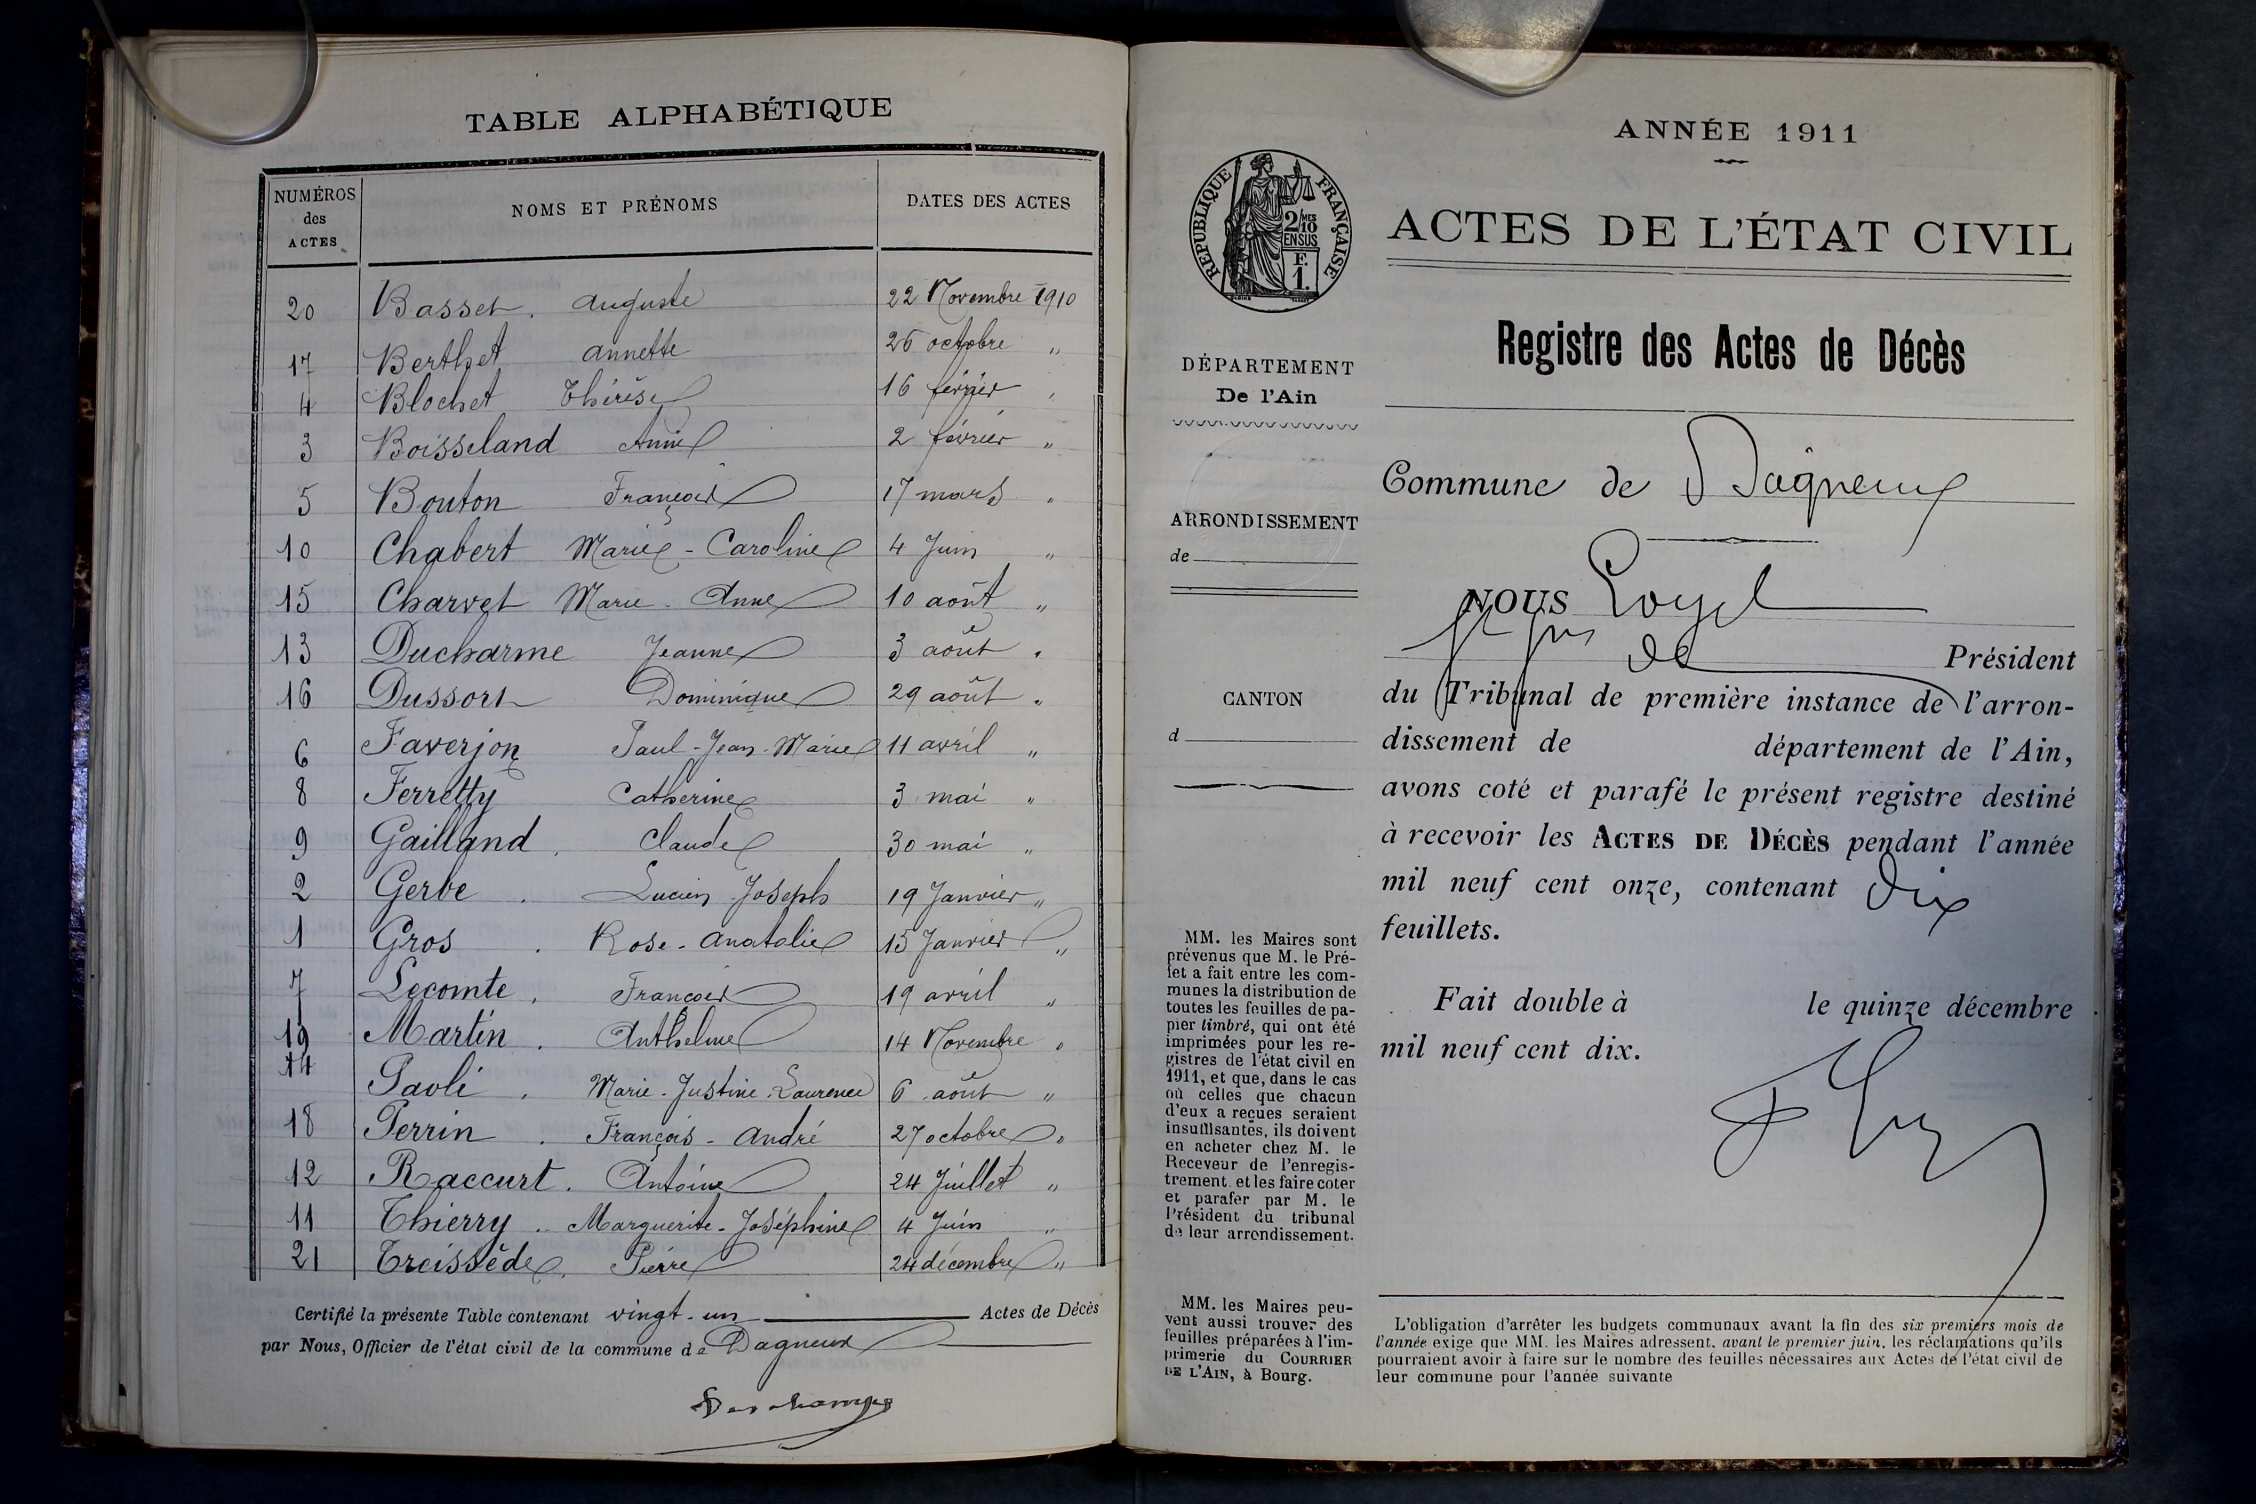 TABLE ALPHABÉTIQUE
NUMÉROS
des
ACTES
NOMS ET PRÉNOMS
DATES DES ACTES
20 Basset. Auguste 22 Novembre 1910
17 Berthet Annette 26 octobre "
4 Blochet Thérèse 16 février "
3 Boisseland Annie 2 février "
5 Bouton François 17 mars "
10 Chabert Marie - Caroline 4 Juin "
15 Charvet Marie - Anne 10 août "
13 Ducharme Jeanne 3 août "
16 Dussort Dominique 29 août "
6 Faverjon Paul - Jean - Marie 11 avril "
8 Ferretty Catherine 3 mai "
9 Gailland. Claude 30 mai "
2 Gerbe . Lucien Joseph 19 Janvier "
1 Gros . Rose - Anatolie 15 Janvier "
7 Lecomte . François 19 avril "
19 Martin . Anthelme 14 Novembre "
14 Paoli . Marie - Justine - Laurence 6 août "
18 Perrin . François - André 27 octobre "
12 Raccurt. Antoine 24 Juillet "
11 Thierry . Marguerite - Joséphine 4 Juin "
21 Treissède. Pierre 24 décembre "
Certifié la présente Table contenant vingt-un Actes de Décès
par Nous, Officier de l'état civil de la commune de Dagneux
Deschamps
ANNÉE 1911
RÉPUBLIQUE FRANÇAISE
2/10 MES
EN SUS
F.
1.
ACTES DE L'ÉTAT CIVIL
Registre des Actes de Décès
DÉPARTEMENT
De l'Ain
Commune de Dagneux
ARRONDISSEMENT
de
NOUS Loyel
Président
CANTON
d
du Tribunal de première instance de l'arron-
dissement de département de l'Ain,
avons coté et parafé le présent registre destiné
à recevoir les ACTES DE DÉCÈS pendant l'année
mil neuf cent onze, contenant dix
feuillets.
Fait double à le quinze décembre
mil neuf cent dix.
MM. les Maires sont
prévenus que M. le Pré-
fet a fait entre les com-
munes la distribution de
toutes les feuilles de pa-
pier timbré, qui ont été
imprimées pour les re-
gistres de l'état civil en
1911, et que, dans le cas
où celles que chacun
d'eux a reçues seraient
insuffisantes, ils doivent
en acheter chez M. le
Receveur de l'enregis-
trement et les faire coter
et parafer par M. le
Président du tribunal
de leur arrondissement.
MM. les Maires peu-
vent aussi trouver des
feuilles préparées à l'im-
primerie du COURRIER
DE L'AIN, à Bourg.
L'obligation d'arrêter les budgets communaux avant la fin des six premiers mois de
l'année exige que MM. les Maires adressent, avant le premier juin, les réclamations qu'ils
pourraient avoir à faire sur le nombre des feuilles nécessaires aux Actes de l'état civil de
leur commune pour l'année suivante